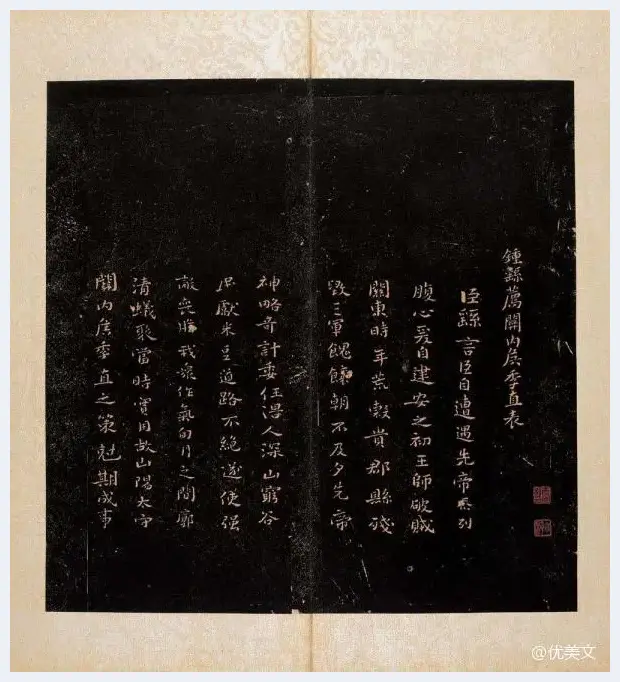 鍾繇薦關內侯季直表
臣繇言臣自遭遇先帝忝列
腹心爰自建安之初王師破賊
關東時年荒穀貴郡縣殘
毀三軍餽饟朝不及夕先帝
神略奇計委任得人深山窮谷
民獻米豆道路不絕遂使強
敵喪膽我衆作氣旬月之間廓
清蟻聚當時實用故山陽太守
關內侯季直之策尅期成事
@优美文